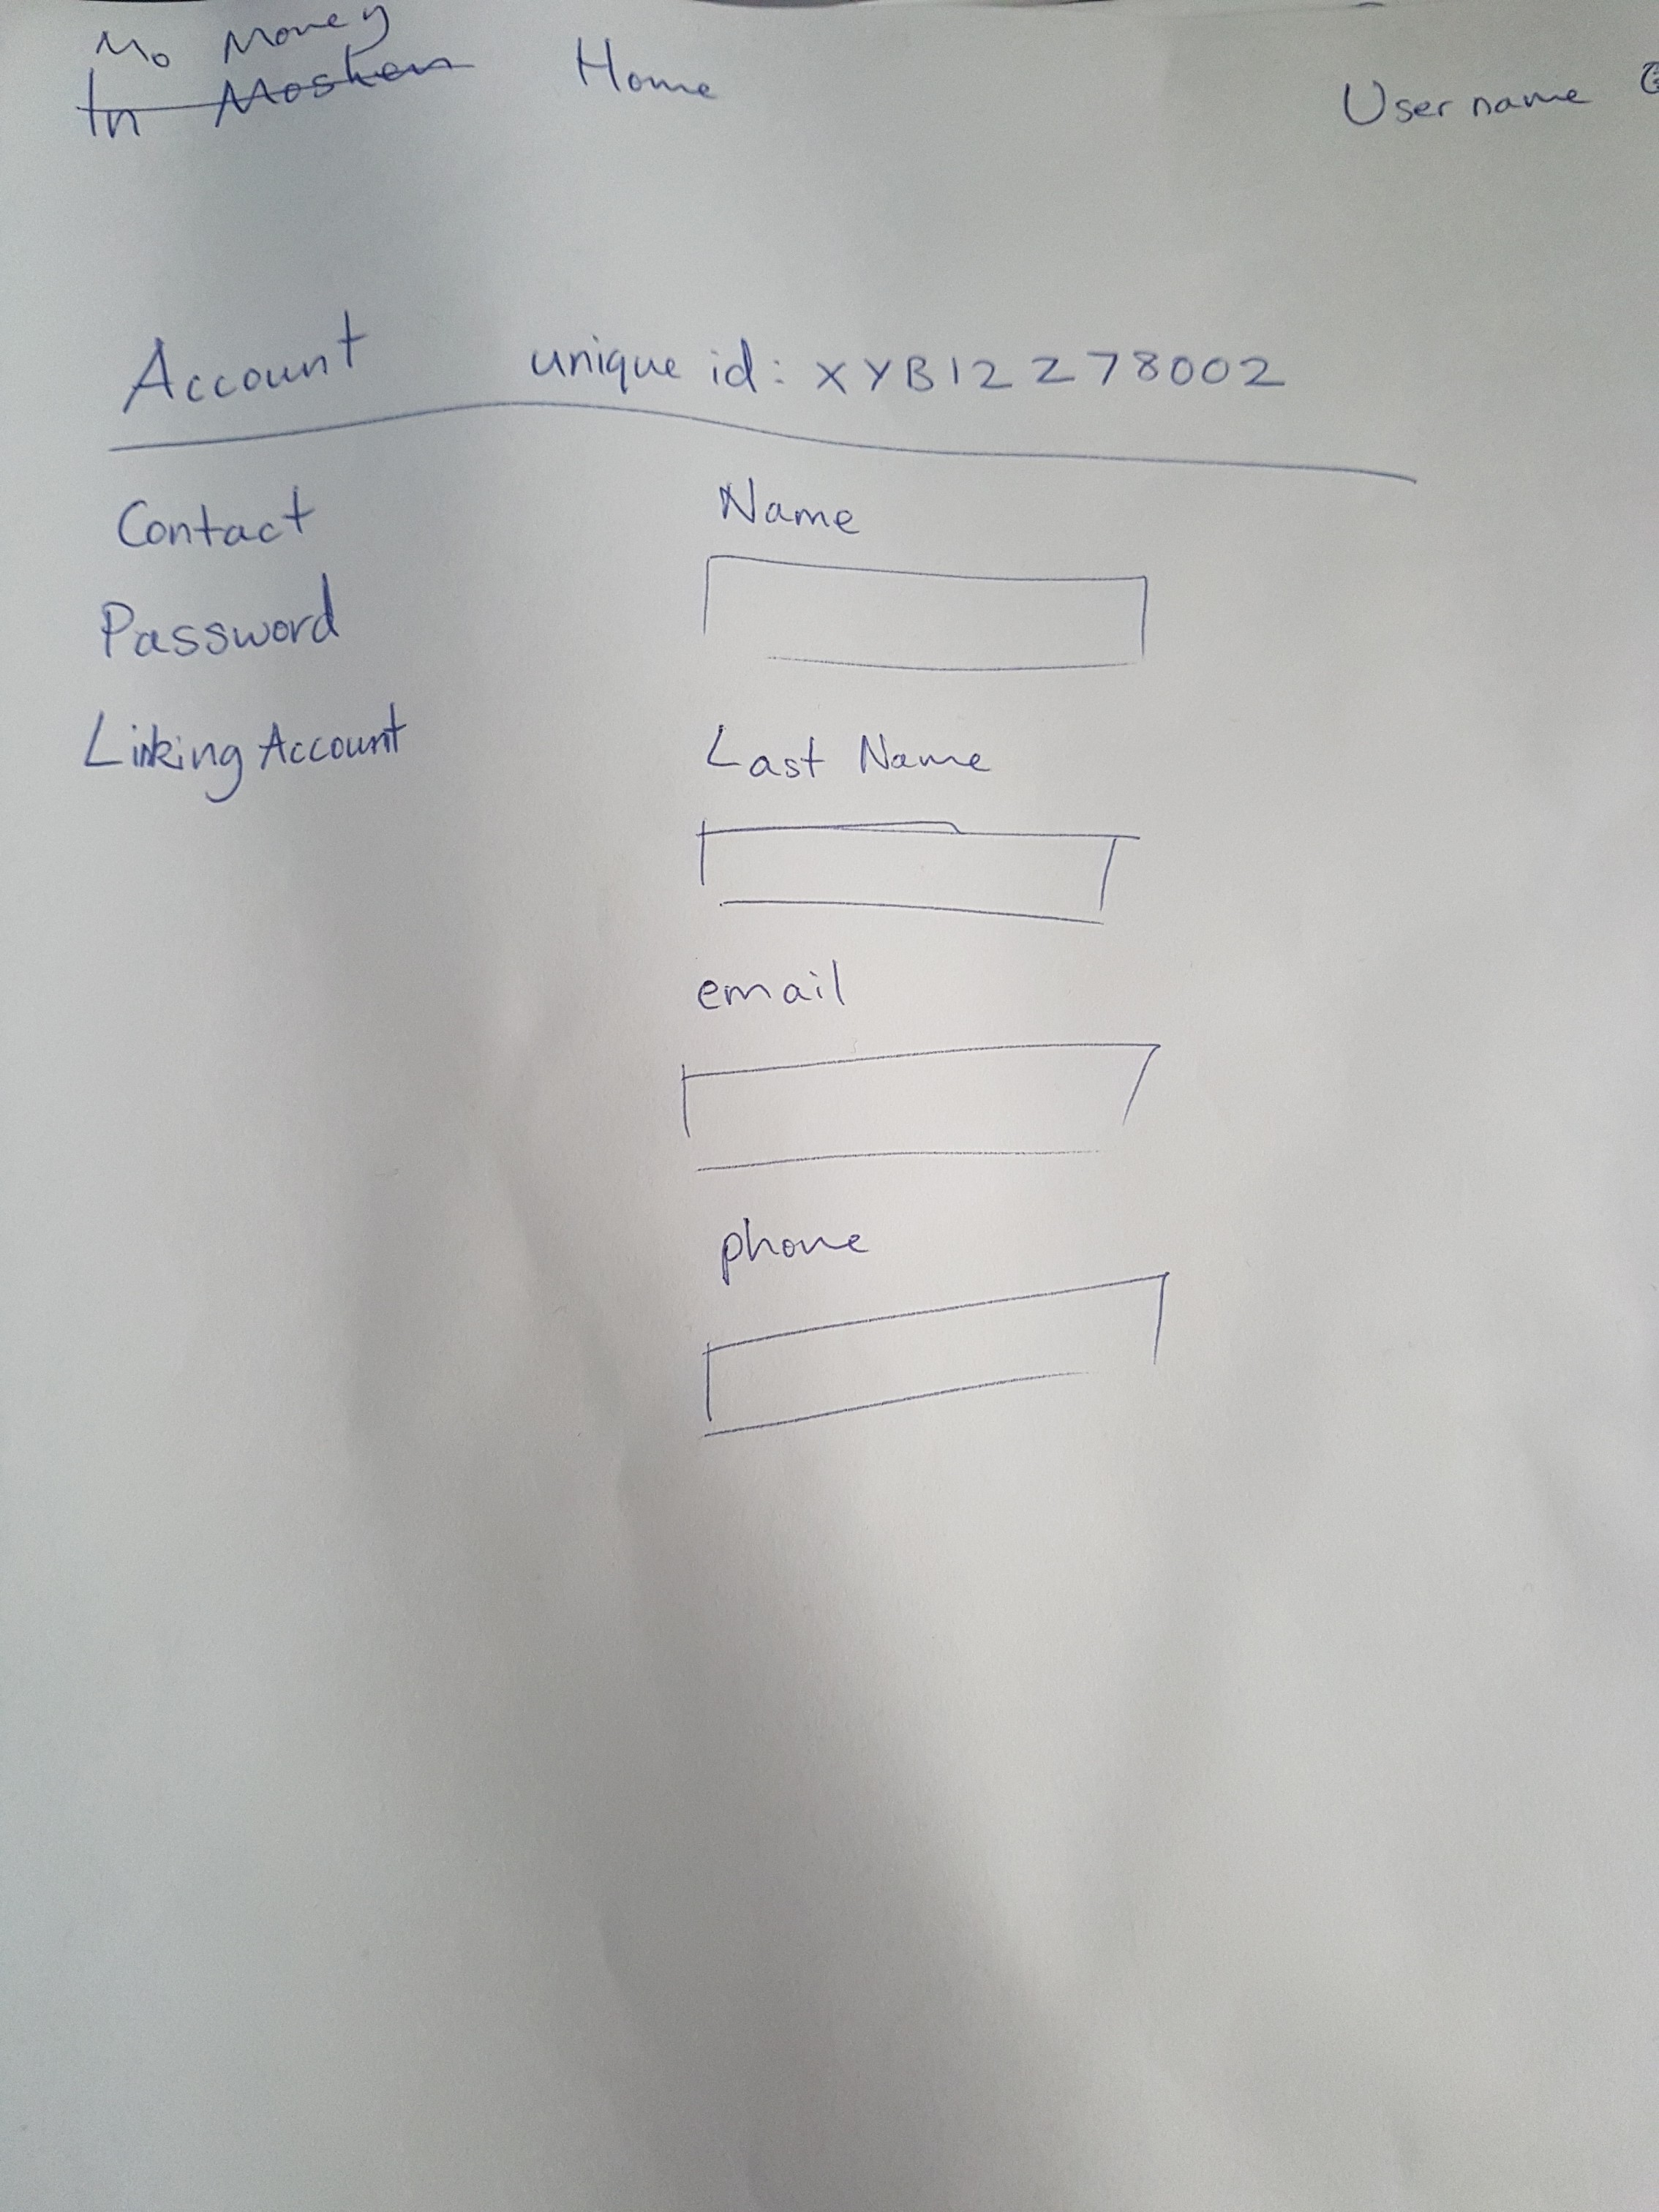 Mo Money
In Moshen Home Username
Account unique id: XYB12278002
Contact Name
Password
Linking Account Last Name
email
phone